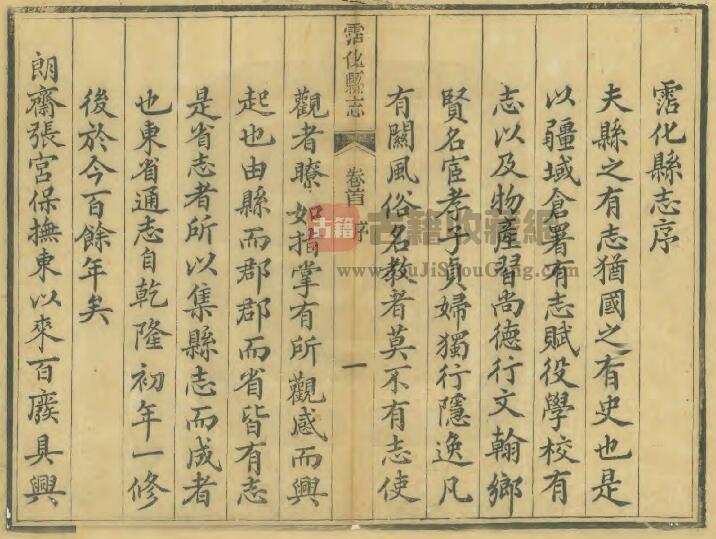 霑化縣志序
夫縣之有志猶國之有史也是
以疆域倉署有志賦役學校有
志以及物產習尚德行文翰鄉
賢名宦孝子貞婦獨行隱逸凡
有關風俗名教者莫不有志使
霑化縣志 卷首 序 一
觀者瞭如指掌有所觀感而興
起也由縣而郡郡而省皆有志
是省志者所以集縣志而成者
也東省通志自乾隆初年一修
後於今百餘年矣
朗齋張宮保撫東以來百廢具興
古籍 古籍收藏網
www.GuJiShouCang.com